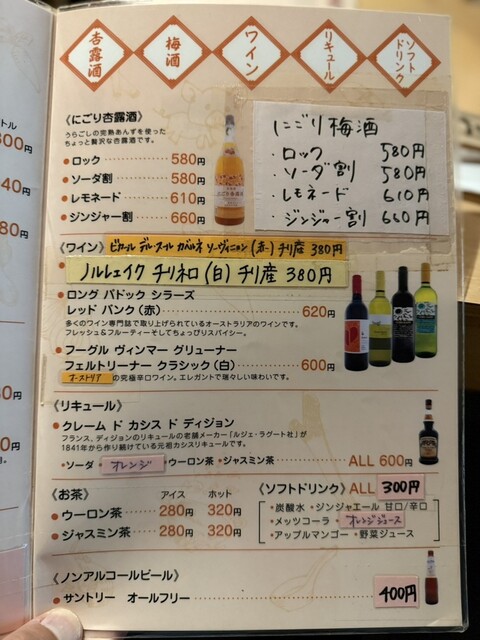 杏露酒
梅酒
ワイン
リキュール
ソフトドリンク
《にごり杏露酒》
うらごしの完熟あんずを使った
ちょっと贅沢な杏露酒です。
・ロック 580円
・ソーダ割 580円
・レモネード 610円
・ジンジャー割 660円
にごり梅酒
・ロック 580円
・ソーダ割 580円
・レモネード 610円
・ジンジャー割 660円
《ワイン》
ピカール デル スール カベルネ ソーヴィニョン(赤) チリ産 380円
(白) チリ産 380円
・ロング パドック シラーズ
レッド バンク(赤) 620円
多くのワイン専門誌で取り上げられているオーストラリアのワインです。
フレッシュ&フルーティーそしてちょっぴりスパイシー。
・フーグル ヴィンマー グリューナー
フェルトリーナー クラシック(白) 600円
オーストリアの究極辛口ワイン。エレガントで瑞々しい味わいです。
《リキュール》
・クレーム ド カシス ド ディジョン
フランス、ディジョンのリキュールの老舗メーカー「ルジェ・ラグート社」が
1841年から作り続けている元祖カシスリキュールです。
・ソーダ ・オレンジ ・ウーロン茶 ・ジャスミン茶 ALL 600円
《お茶》 アイス ホット
・ウーロン茶 280円 320円
・ジャスミン茶 280円 320円
《ソフトドリンク》ALL 300円
・炭酸水 ・ジンジャエール 甘口/辛口
・メッツコーラ ・オレンジジュース
・アップルマンゴー ・野菜ジュース
《ノンアルコールビール》
・サントリー オールフリー 400円